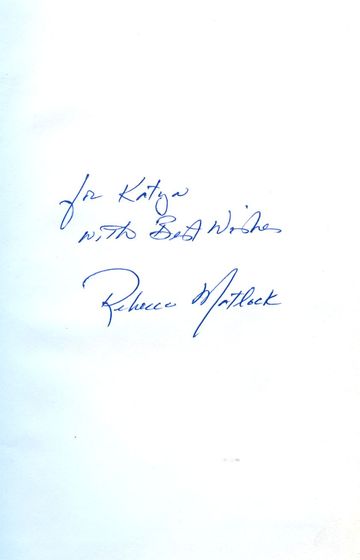 for Katya
with Best Wishes
Rebecca Matlock